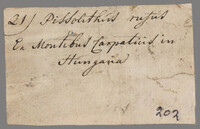 21) Pissolithus rufus
Ex Montibus Carpaticis in
Hungaria
202